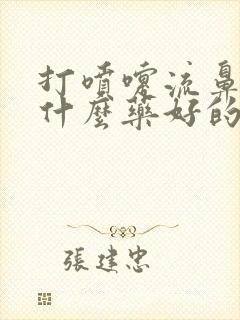 打噴嚏流鼻
什麼藥好的
張建忠